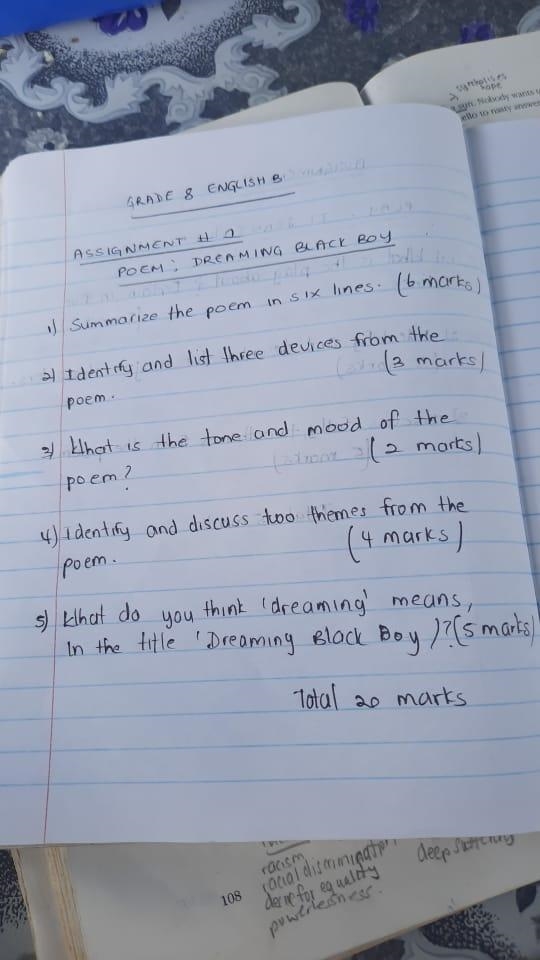 symbolises
hope
sun. Nobody wants
ello to nasty answer
GRADE 8 ENGLISH B
ASSIGNMENT # 1
POEM: DREAMING BLACK BOY
1) Summarize the poem in six lines. (6 marks)
2) Identify and list three devices from the
poem. (3 marks)
3) What is the tone and mood of the
poem? (2 marks)
4) identify and discuss two themes from the
poem. (4 marks)
5) What do you think 'dreaming' means,
In the title 'Dreaming Black Boy)?(5 marks)
Total 20 marks
racism
racial discrimination
desire for equality
powerlessness.
108